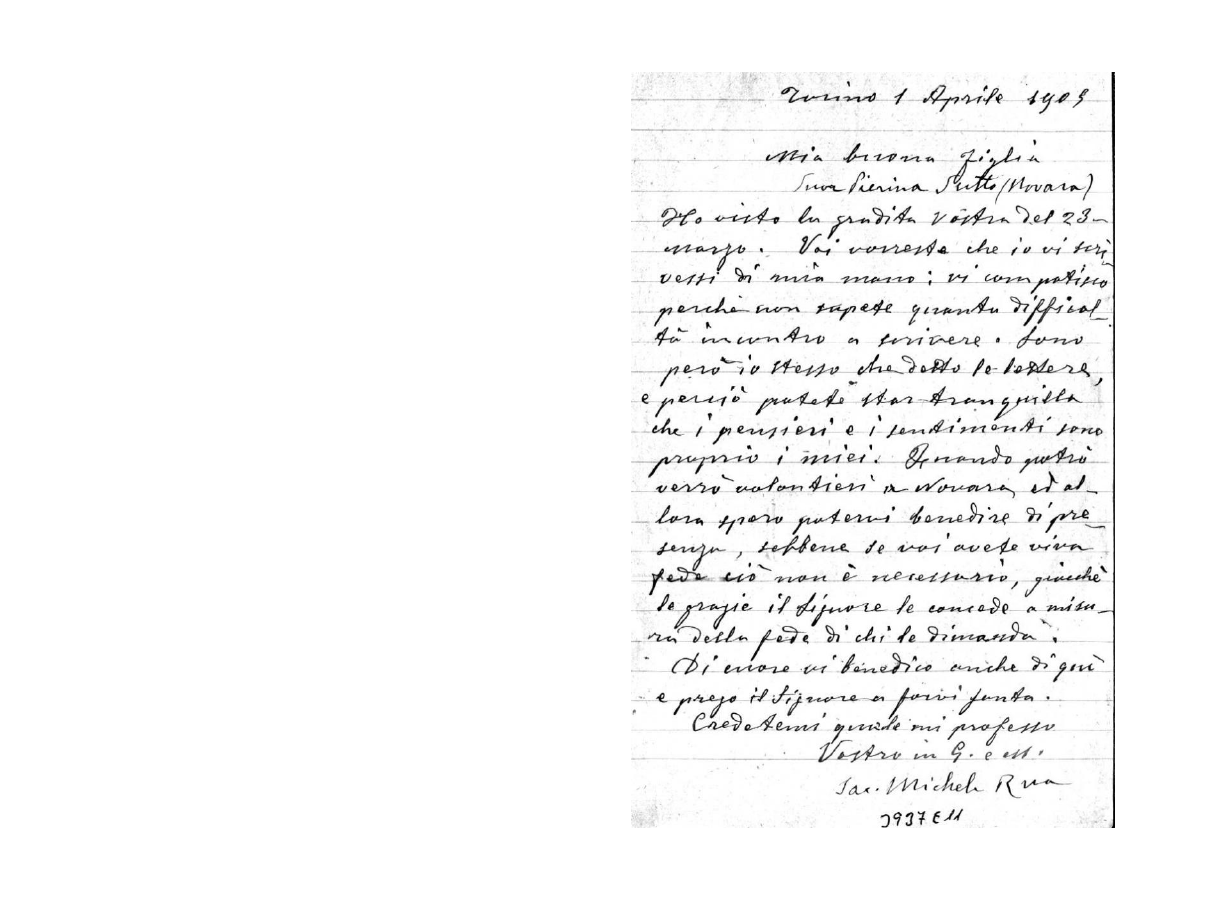 Torino 1 Aprile 1905
Mia buona figlia
Suor Pierina Sutto (Novara)
Ho visto la gradita Vostra del 23
marzo. Voi vorreste che io vi scri-
vessi di mia mano; vi compatisco
perchè non sapete quanta difficol-
tà incontro a scrivere. Sono
però io stesso che detto le lettere,
e perciò potete star tranquilla
che i pensieri e i sentimenti sono
proprio i miei. Quando potrò
verrò volontieri a Novara, ed al-
lora spero potervi benedire di pre-
senza, sebbene se voi avete viva
fede ciò non è necessario, giacchè
le grazie il Signore le concede a misu-
ra della fede di chi le dimanda.
Di cuore vi benedico anche di qui
e prego il Signore a farvi santa.
Credetemi quale mi professo
Vostro in G. e M.
Sac. Michele Rua
3937 E11